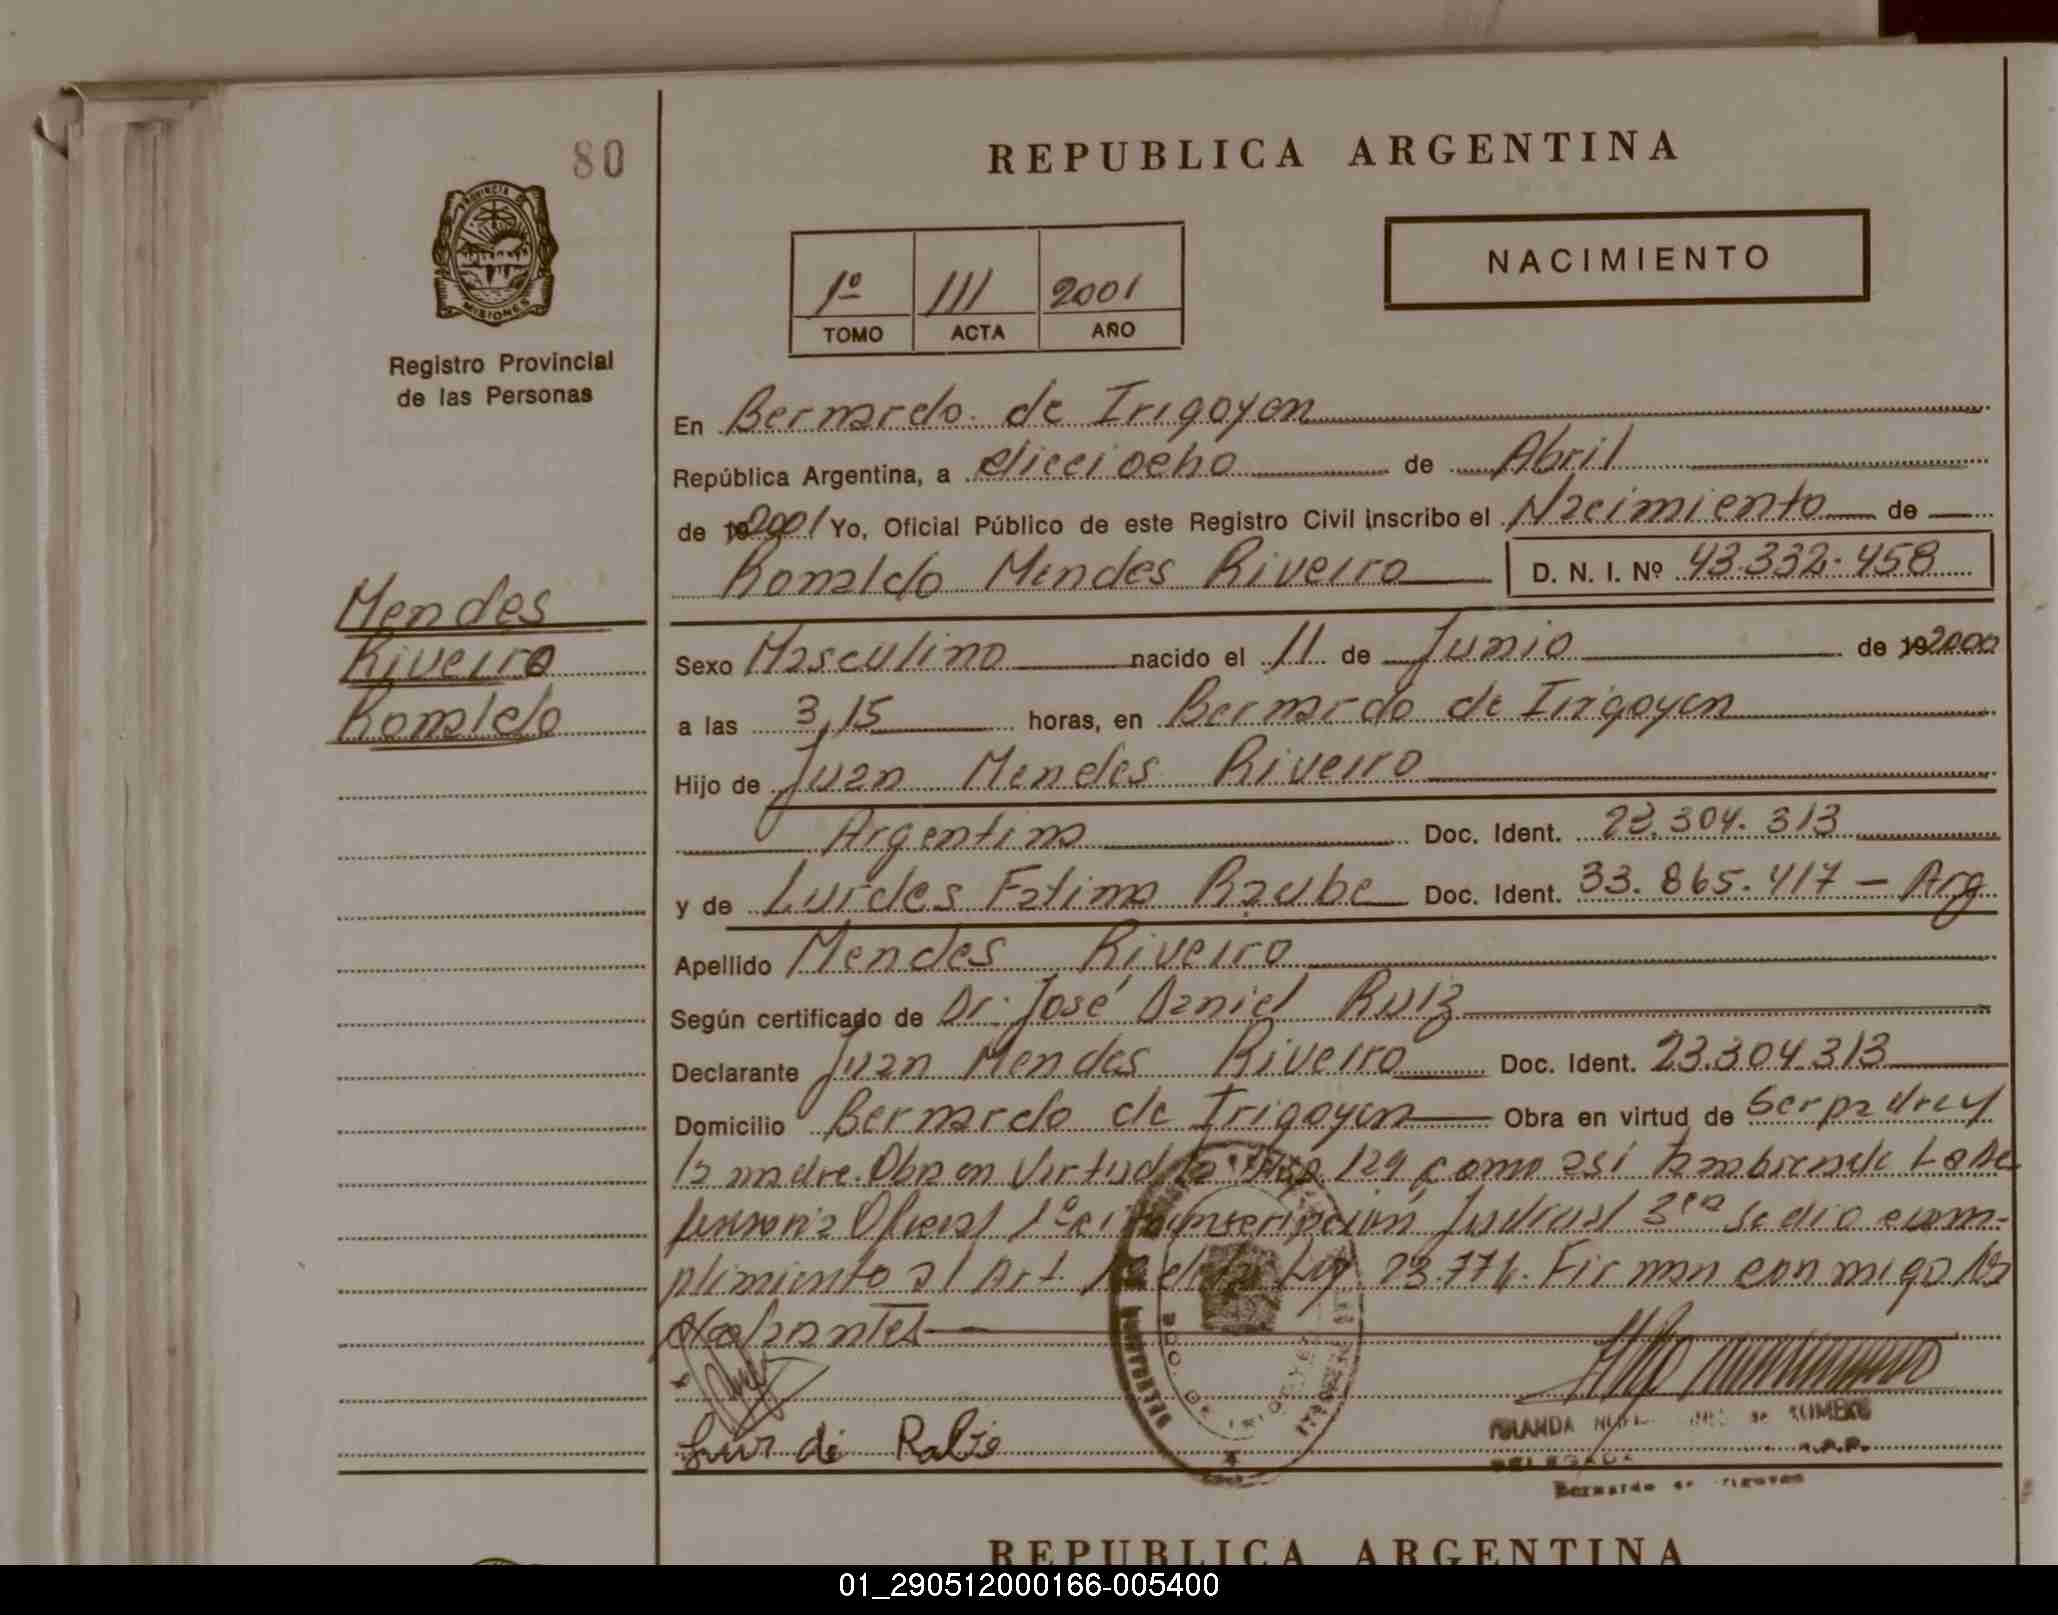 80
REPUBLICA ARGENTINA
PROVINCIA DE
MISIONES
Registro Provincial
de las Personas
NACIMIENTO
1º 111 2001
TOMO ACTA AÑO
En Bernardo de Irigoyen
República Argentina, a dieciocho de Abril
de 19 2001 Yo, Oficial Público de este Registro Civil inscribo el Nacimiento de
Ronaldo Mendes Riveiro D. N. I. Nº 43.332.458
Mendes
Riveiro
Ronaldo
Sexo Masculino nacido el 11 de Junio de 19 2000
a las 3,15 horas, en Bernardo de Irigoyen
Hijo de Juan Mendes Riveiro
Argentina Doc. Ident. 23.304.313
y de Lurdes Fatima Raube Doc. Ident. 33.865.417 - Arg
Apellido Mendes Riveiro
Según certificado de Dr. José Daniel Ruiz
Declarante Juan Mendes Riveiro Doc. Ident. 23.304.313
Domicilio Bernardo de Irigoyen Obra en virtud de Ser padre y
la madre. Obra en virtud 129 como así tambien de la De
fensoria Oficial 1º Judicial 3ra se dio cum-
plimiento al Art. Ley 23.776. Firman conmigo los
DELEGADA
Bernardo de Irigoyen
REPUBLICA ARGENTINA
01_290512000166-005400